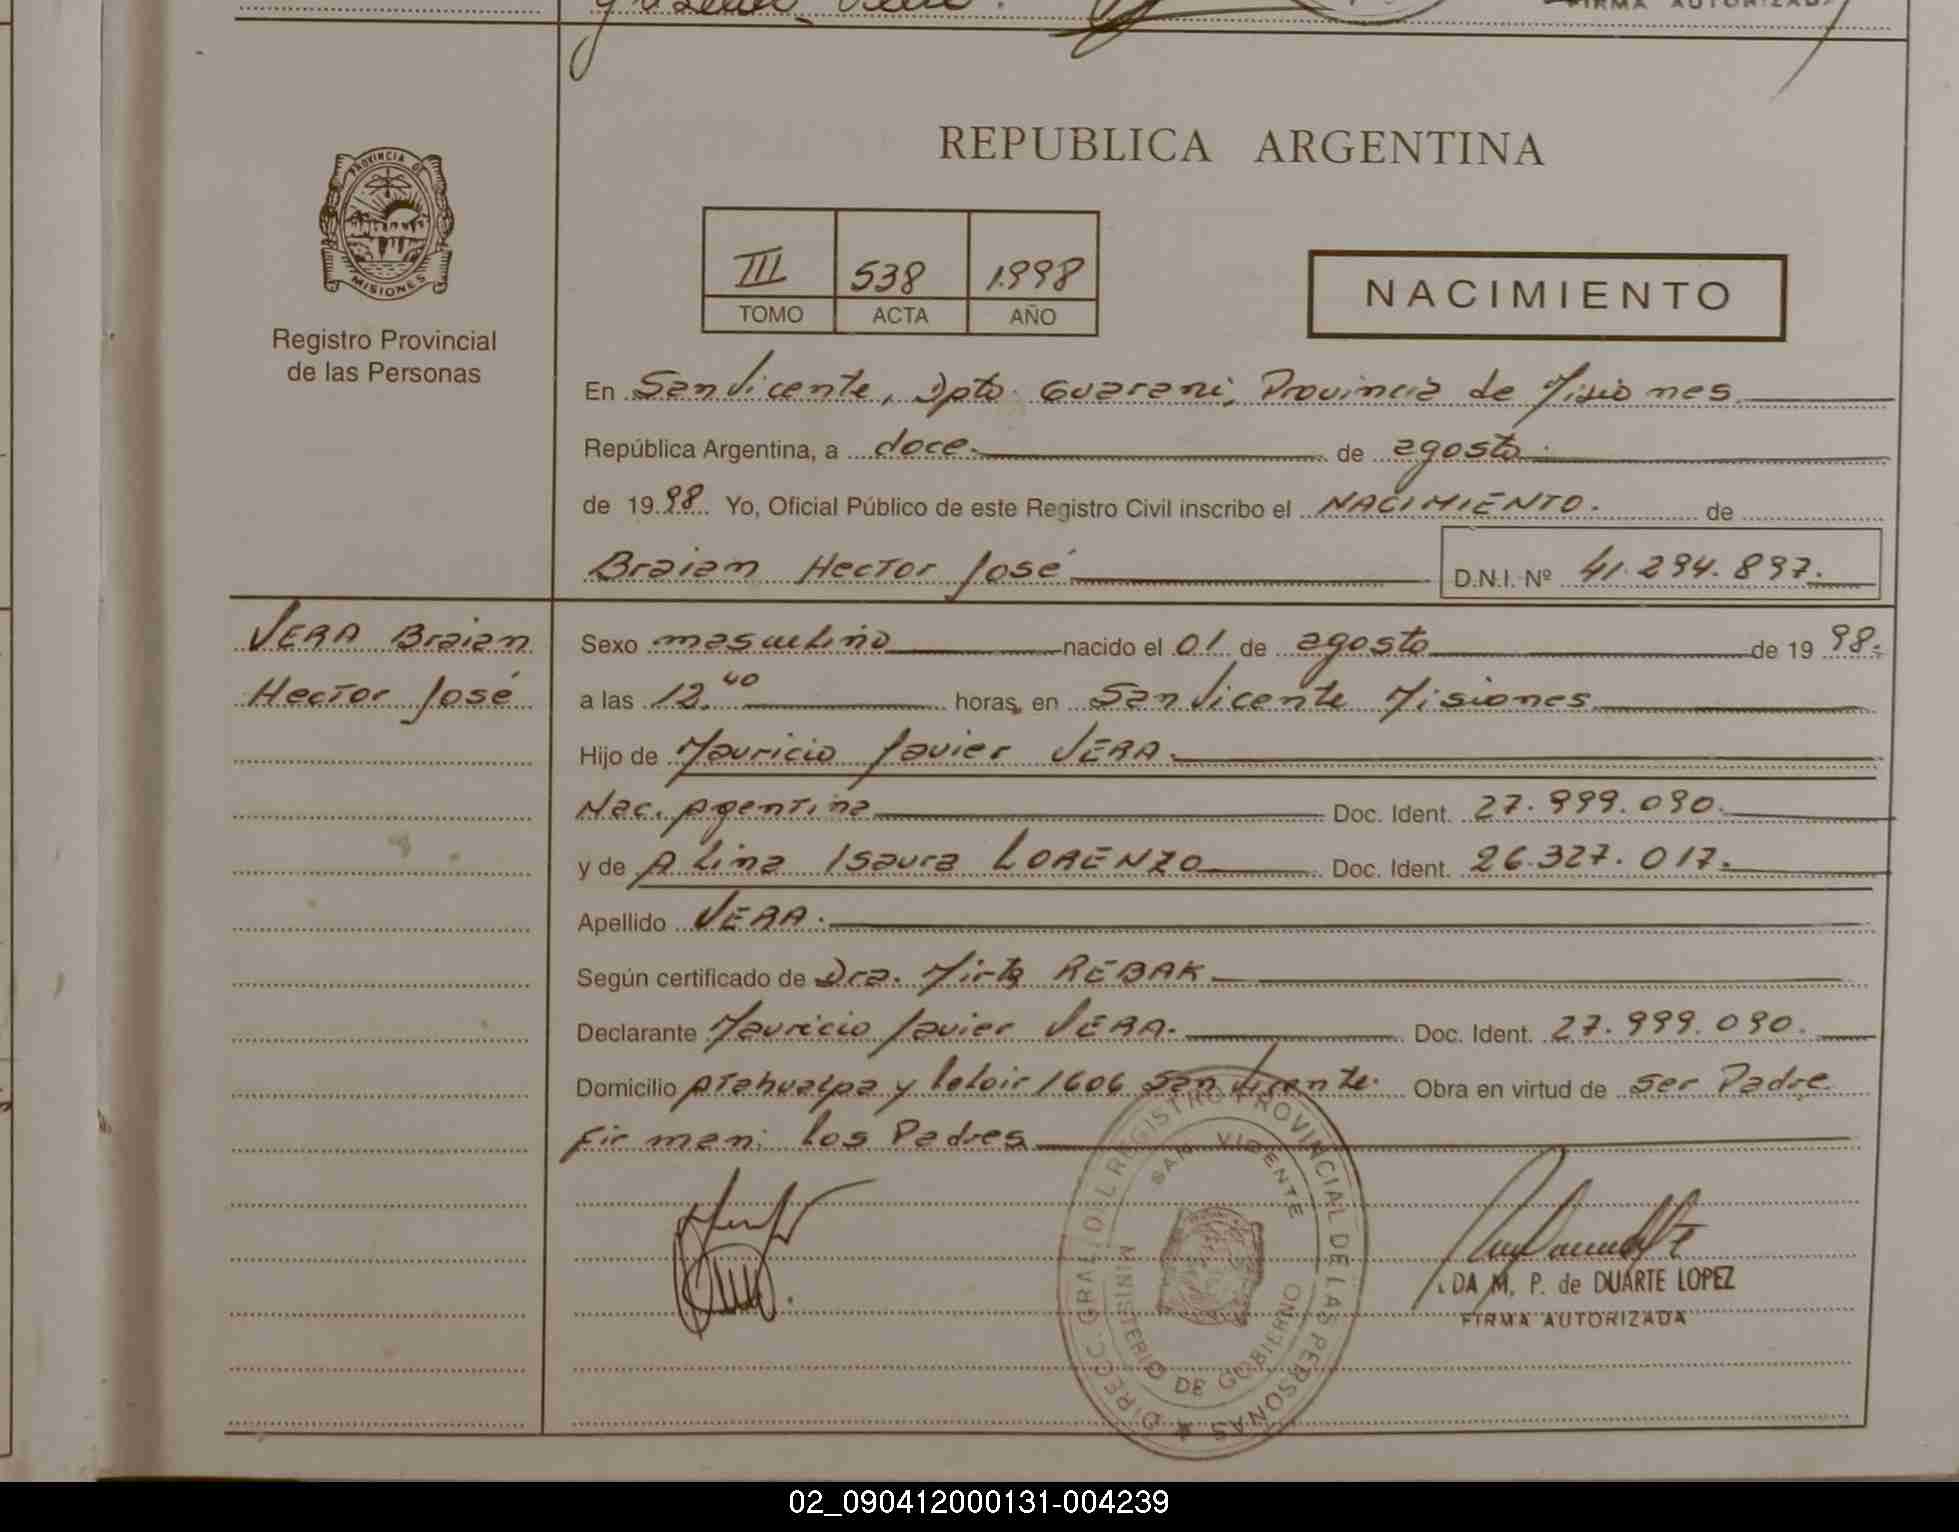 FIRMA AUTORIZADA
PROVINCIA DE
MISIONES
Registro Provincial
de las Personas
REPUBLICA ARGENTINA
III 538 1998
TOMO ACTA AÑO
NACIMIENTO
En San Vicente, Dpto. Guarani, Provincia de Misiones
República Argentina, a doce de agosto
de 1998 Yo, Oficial Público de este Registro Civil inscribo el NACIMIENTO. de
Braian Hector José D.N.I. Nº 41.294.897.
VERA Braian
Hector José
Sexo masculino nacido el 01 de agosto de 1998.
a las 12.40 horas, en San Vicente Misiones
Hijo de Mauricio Javier VERA.
Nac. Agentina Doc. Ident. 27.999.090.
y de Alina Isaura LORENZO Doc. Ident. 26.327.017.
Apellido VERA.
Según certificado de Dra. Mirta REBAK
Declarante Mauricio Javier VERA. Doc. Ident. 27.999.090.
Domicilio Atahualpa y Leloir 1606 San Vicente. Obra en virtud de ser Padre
Firman: los Padres
DIRECC. GRAL. DEL REGISTRO PROVINCIAL DE LAS PERSONAS
SAN VICENTE
MINISTERIO DE GOBIERNO
DA M. P. de DUARTE LOPEZ
FIRMA AUTORIZADA
02_090412000131-004239